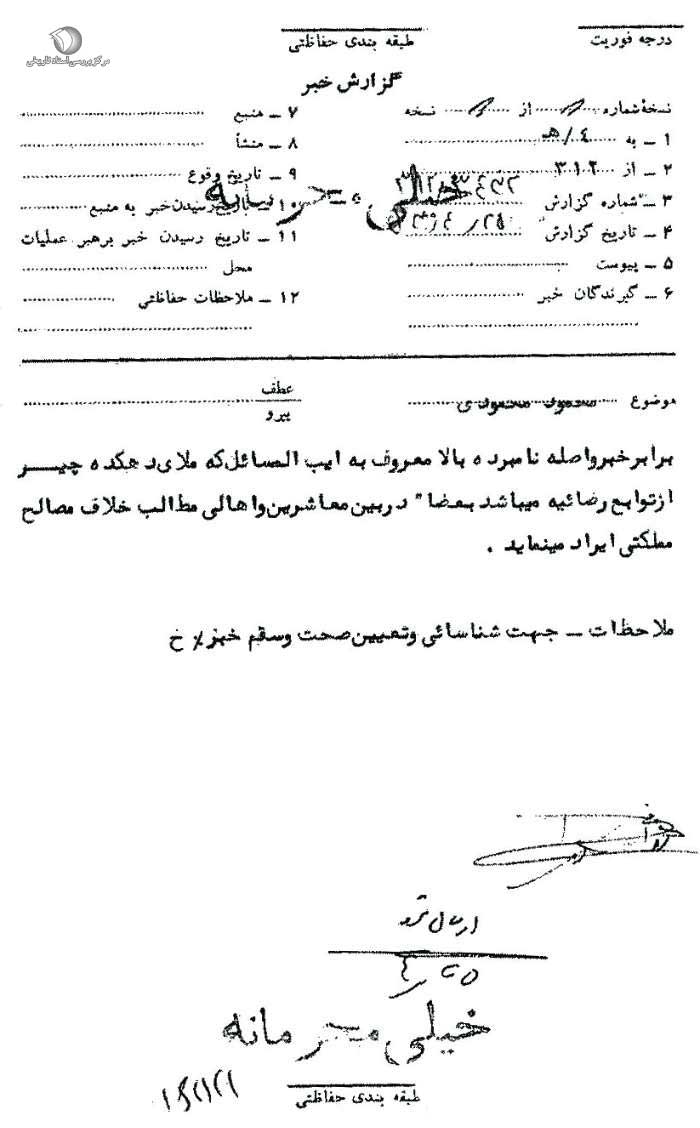 مرکز بررسی اسناد تاریخی
درجه فوریت
طبقه بندی حفاظتی
گزارش خبر
نسخهٔ شماره از نسخه
۱ ـ به ۴/هـ
۲ ـ از ۳۱۲
۳ ـ شماره گزارش
۴ ـ تاریخ گزارش
۵ ـ پیوست
۶ ـ گیرندگان خبر
۷ ـ منبع
۸ ـ منشأ
۹ ـ تاریخ وقوع
۱۰ ـ تاریخ رسیدن خبر به منبع
۱۱ ـ تاریخ رسیدن خبر برهبر عملیات
محل
۱۲ ـ ملاحظات حفاظتی
خیلی محرمانه
موضوع محمود محمودی
عطف
پیرو
برابر خبر واصله نامبرده بالا معروف به ایب المسائل که ملای دهکده چیر
از توابع رضائیه میباشد بعضا" در بین معاشرین و اهالی مطالب خلاف مصالح
مملکتی ایراد مینماید .
ملاحظات ـ جهت شناسائی و تعیین صحت و سقم خبر٪ خ
ارسال شد
خیلی محرمانه
طبقه بندی حفاظتی